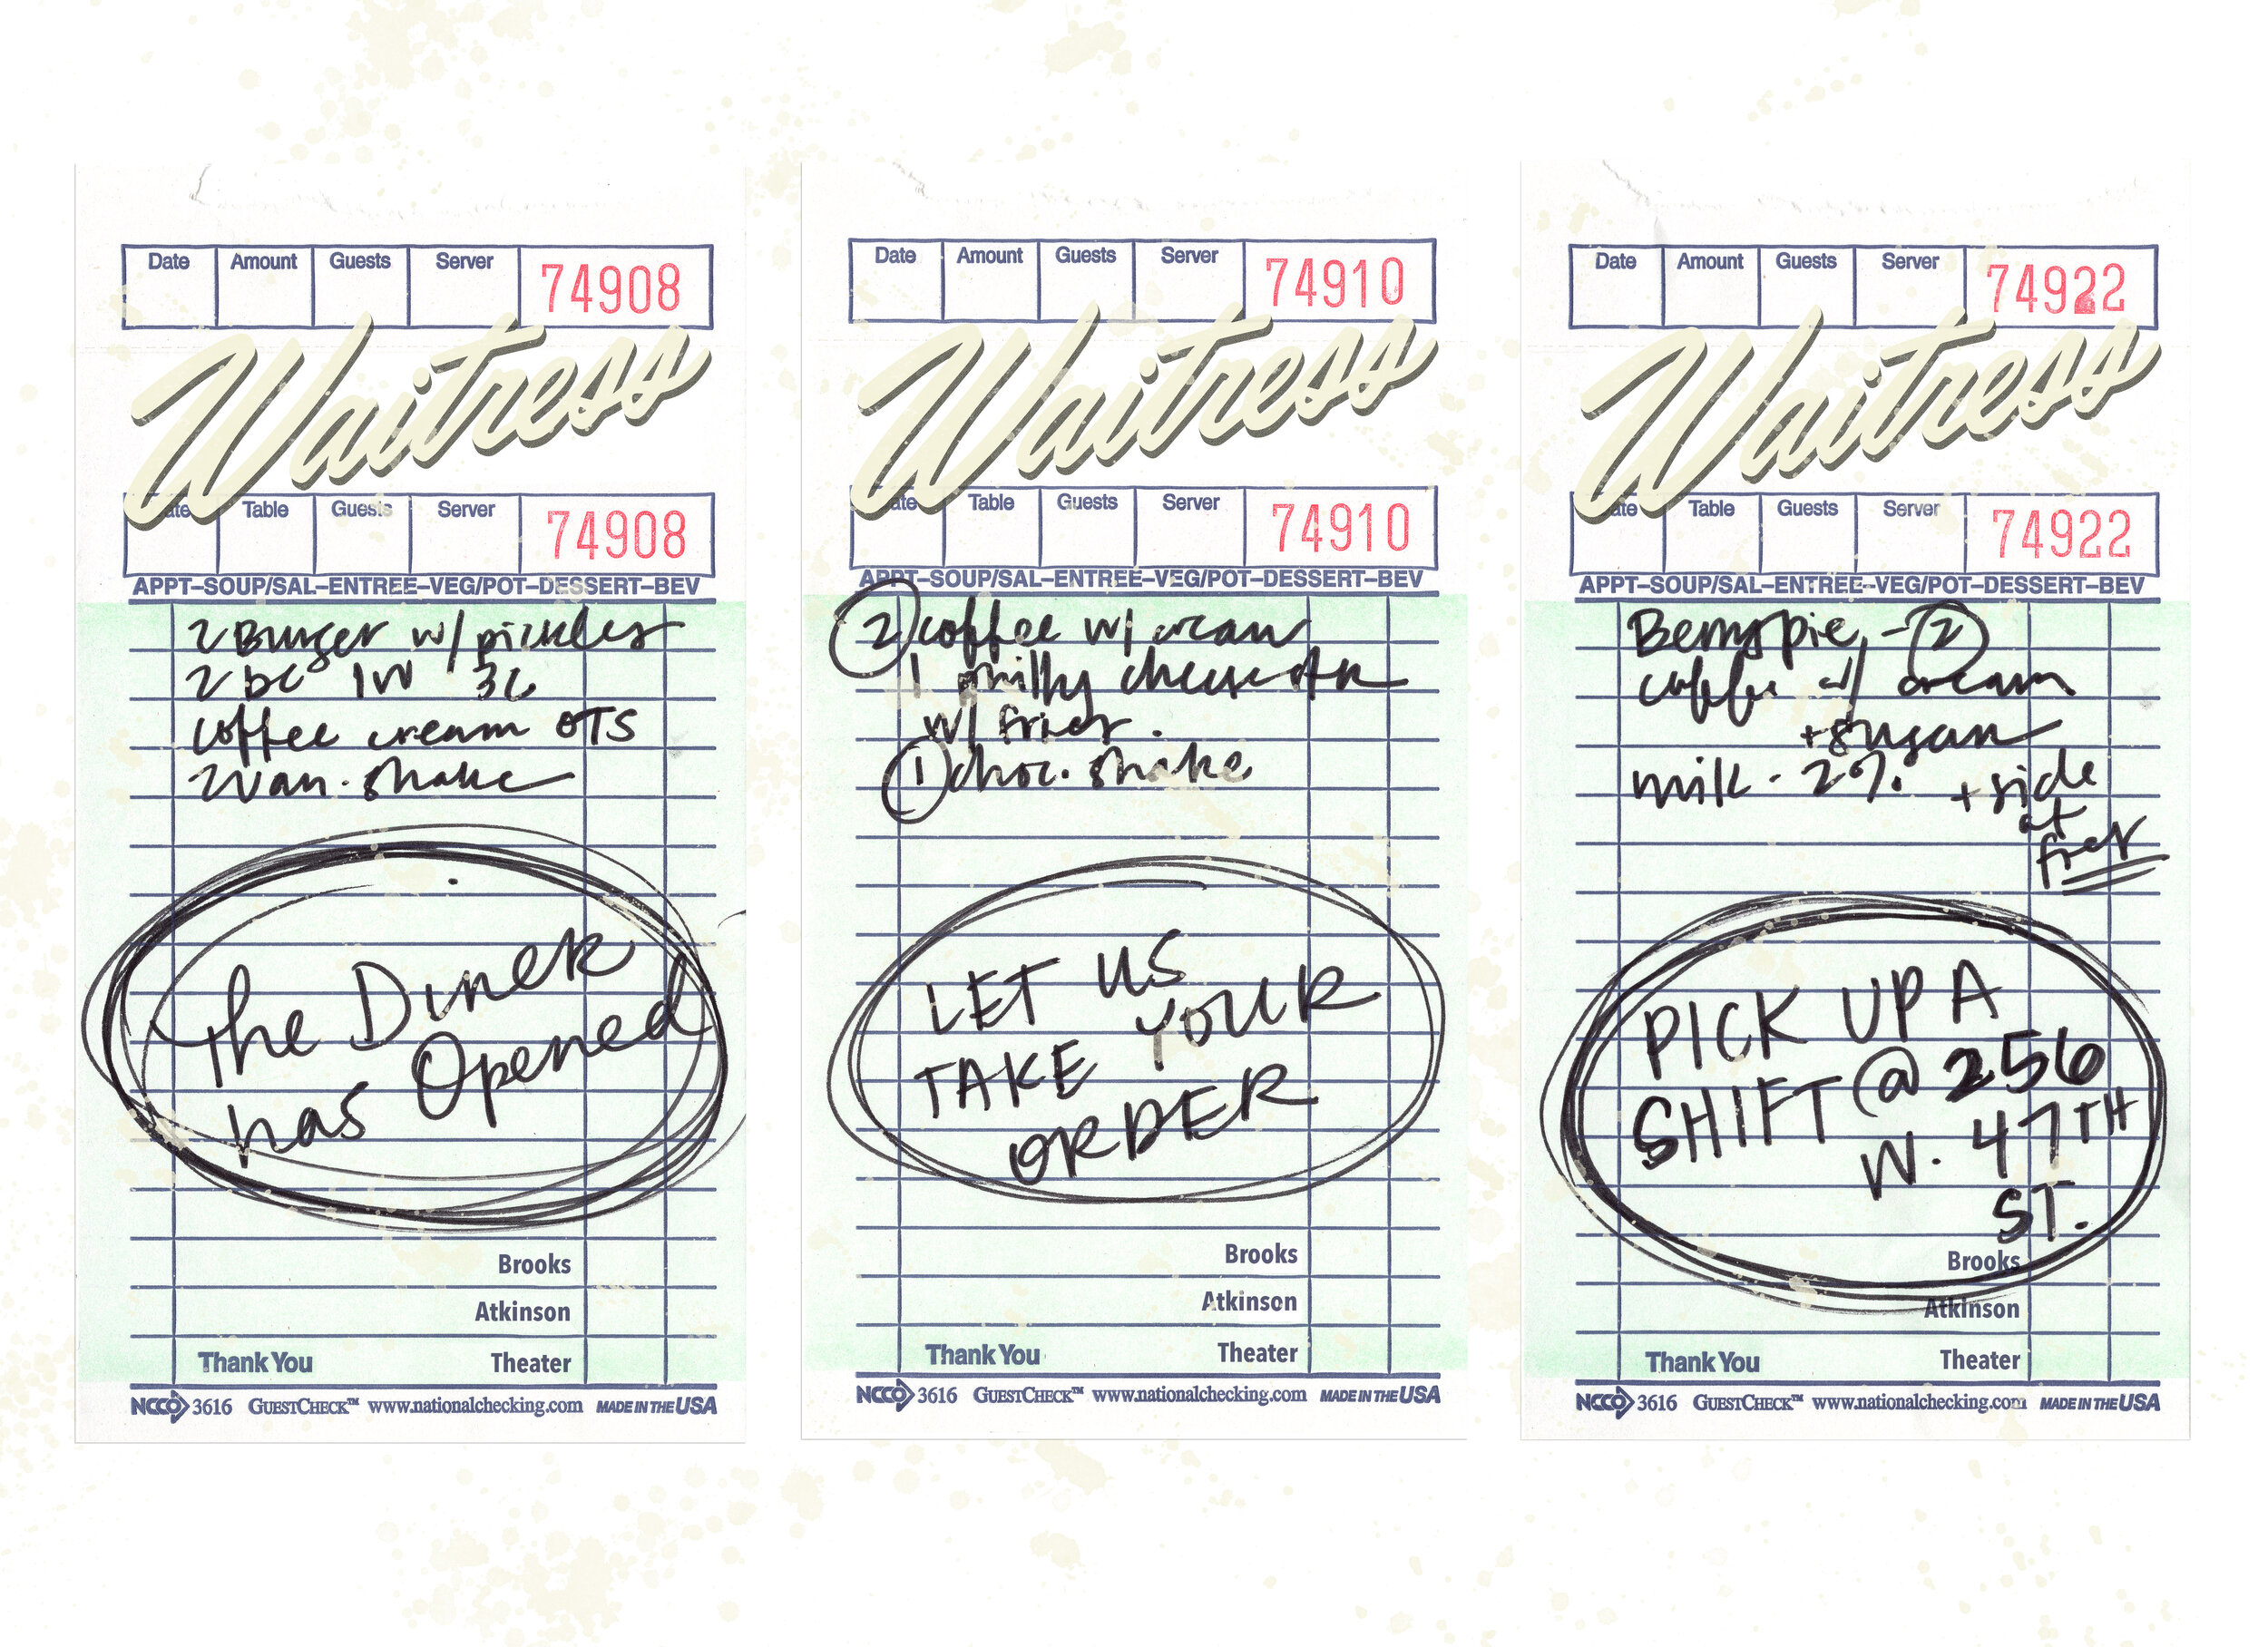 Date Amount Guests Server 74908
Waitress
Date Table Guests Server 74908
APPT–SOUP/SAL–ENTREE–VEG/POT–DESSERT–BEV
2 Burger w/ pickles
2 DC 1W 3C
coffee cream OTS
2 Van. shake
The Diner
has Opened
Brooks
Atkinson
Thank You Theater
NCCO 3616 GUESTCHECK™ www.nationalchecking.com MADE IN THE USA
Date Amount Guests Server 74910
Waitress
Date Table Guests Server 74910
APPT–SOUP/SAL–ENTREE–VEG/POT–DESSERT–BEV
2 coffee w/ cream
1 philly cheesestk
w/ fries.
1 choc. shake
LET US
TAKE YOUR
ORDER
Brooks
Atkinson
Thank You Theater
NCCO 3616 GUESTCHECK™ www.nationalchecking.com MADE IN THE USA
Date Amount Guests Server 74922
Waitress
Date Table Guests Server 74922
APPT–SOUP/SAL–ENTREE–VEG/POT–DESSERT–BEV
Berry pie - 2
coffee w/ cream
+ sugar
milk - 2% + side
of
fries
PICK UP A
SHIFT @ 256
W. 47TH
ST.
Brooks
Atkinson
Thank You Theater
NCCO 3616 GUESTCHECK™ www.nationalchecking.com MADE IN THE USA